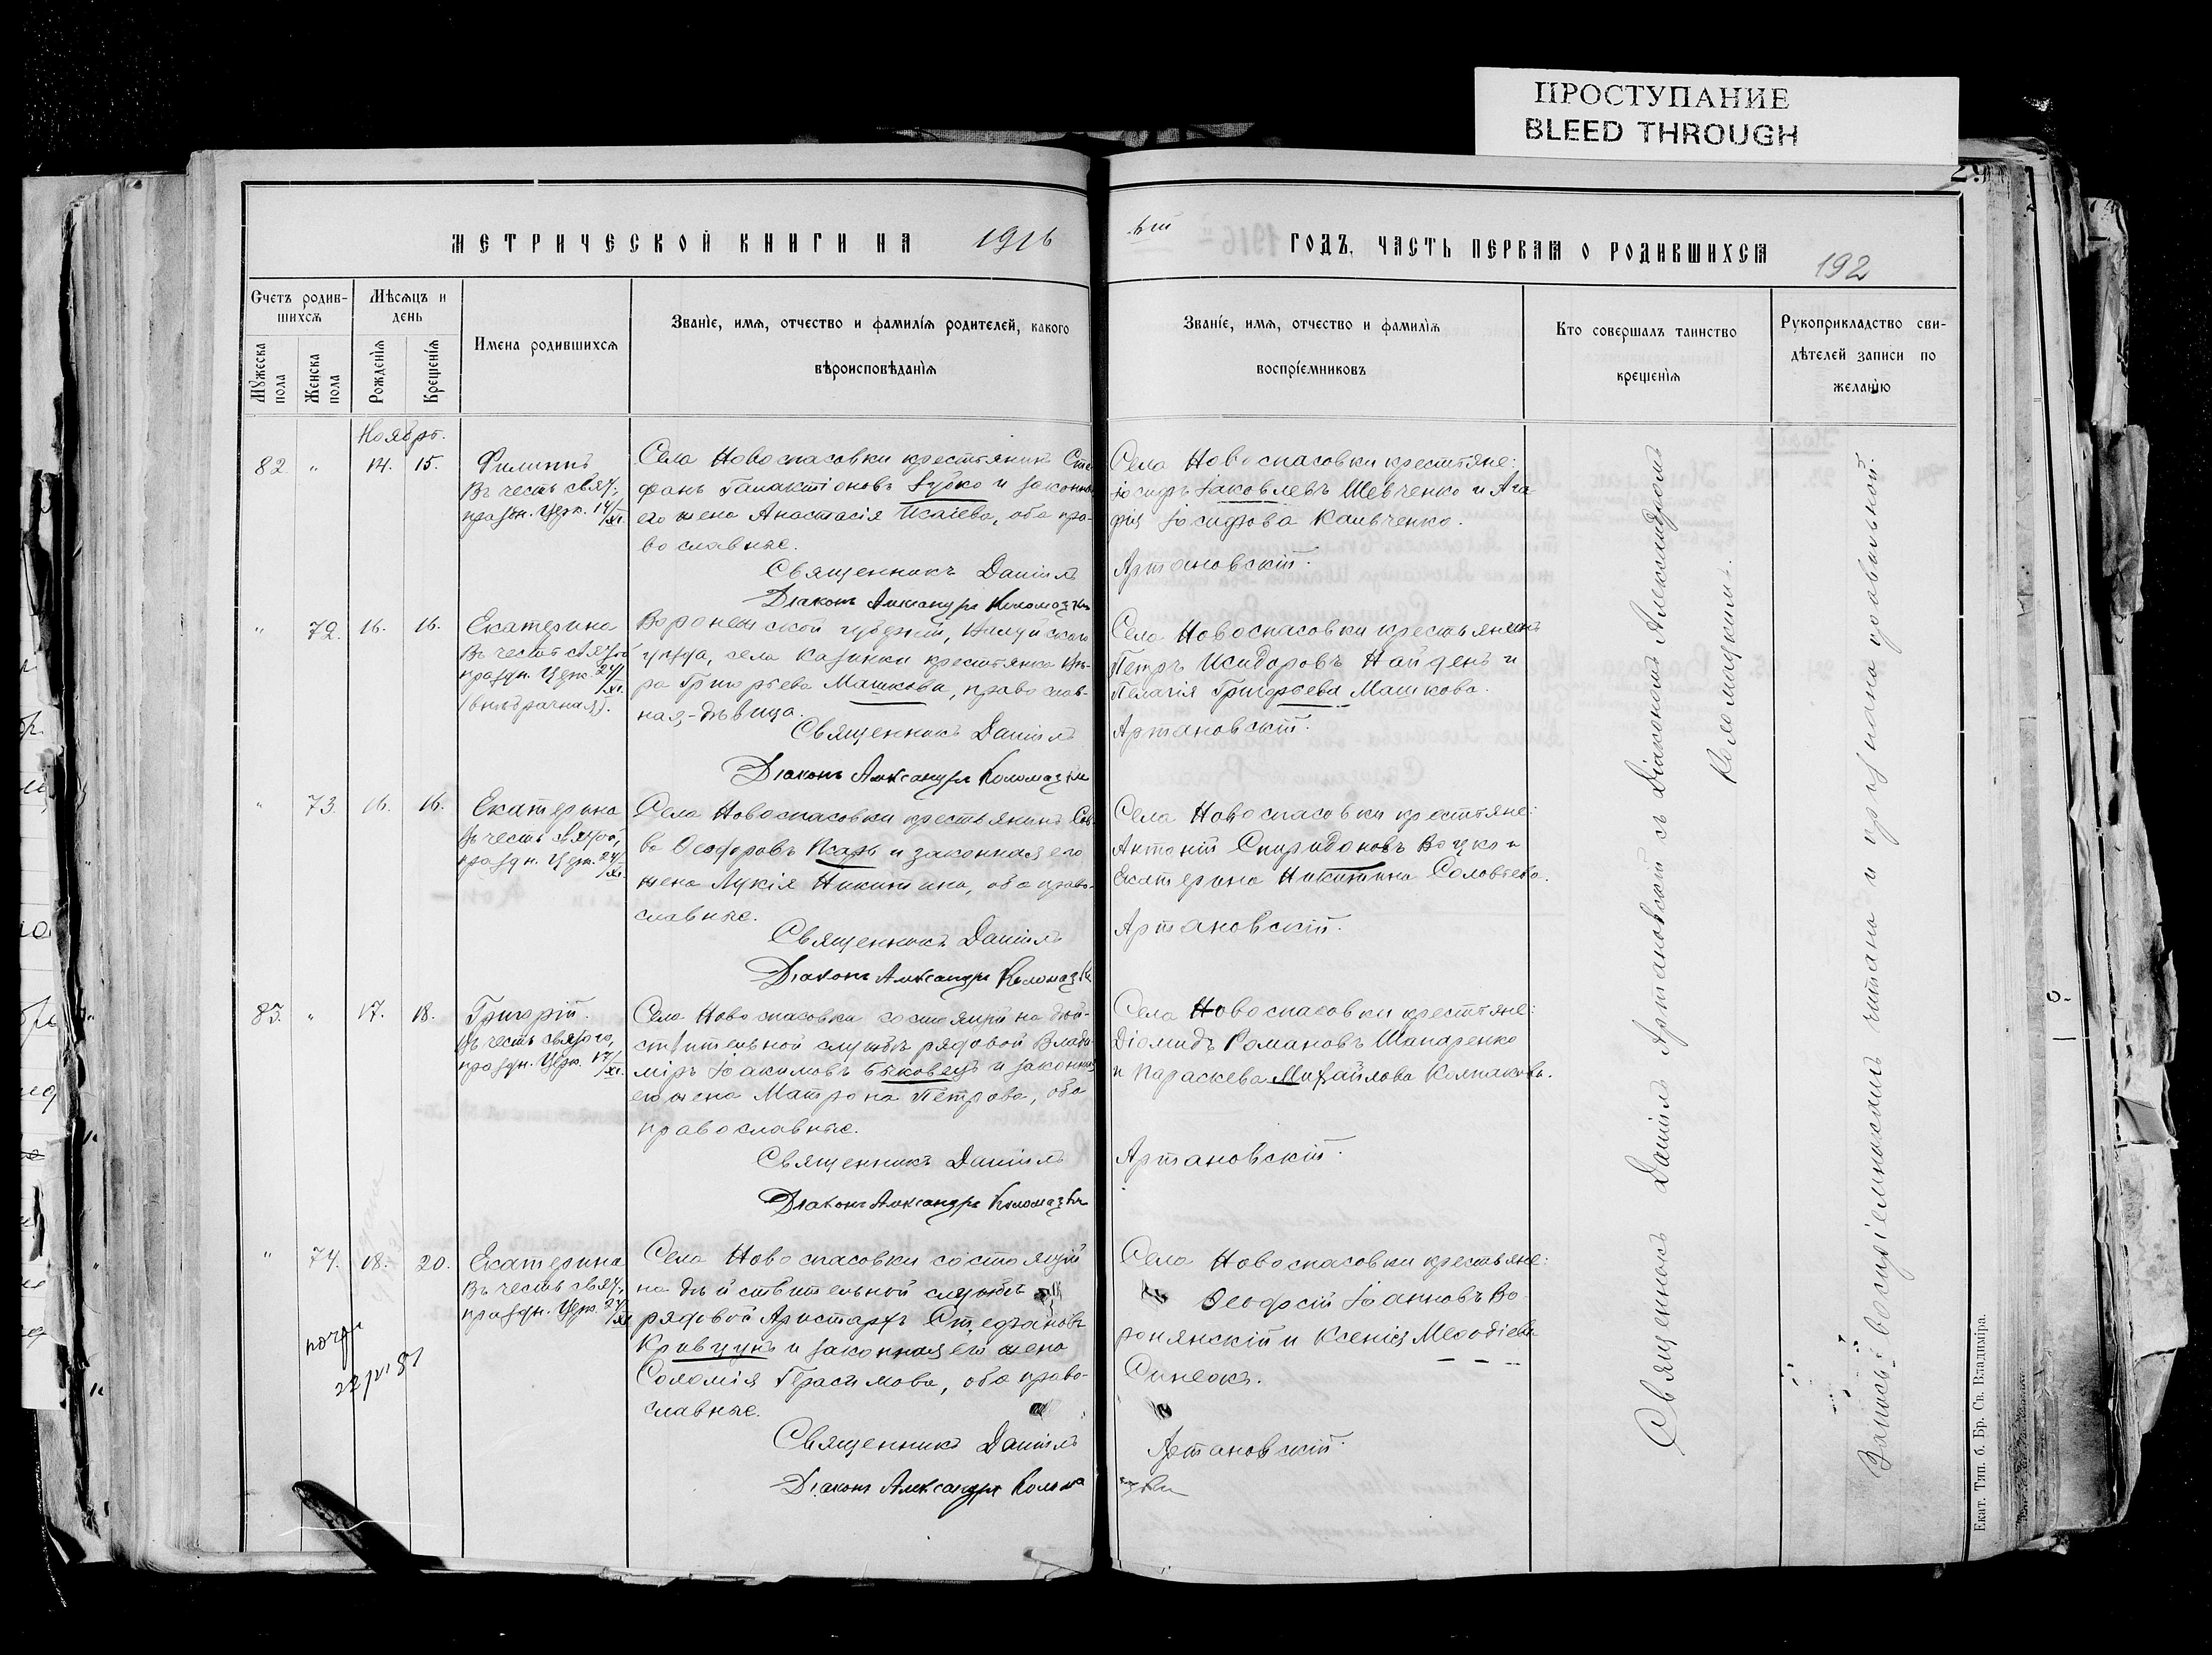 ПРОСТУПАНИЕ
BLEED THROUGH
МЕТРИЧЕСКОЙ КНИГИ НА 1916
ый ГОДЪ, ЧАСТЬ ПЕРВАЯ О РОДИВШИХСЯ
192
Счетъ родив-
шихся
Мужеска пола
Женска пола
Мѣсяцъ и
день
Рожденія
Крещенія
Имена родившихся
Званіе, имя, отчество и фамилія родителей, какого
вѣроисповѣданія
Званіе, имя, отчество и фамилія
воспріемниковъ
Кто совершалъ таинство
крещенія
Рукоприкладство сви-
дѣтелей записи по
желанію
Ноябрь.
82. " 14. 15.
Филиппъ
Въ честь свят.,
праздн. Церк. 14/XI.
Села Новоспасовки крестьянинъ Сте-
фанъ Галактіоновъ Зубко и законная
его жена Анастасія Исаіева, оба пра-
вославные.
Священникъ Даніилъ
Діаконъ Александръ Коломацкій
Села Новоспасовки крестьяне:
Іосифъ Іаковлевъ Шевченко и Ага-
фія Іосифова Кольченко.
Артановскій.
" 72. 16. 16.
Екатерина
Въ честь святой
праздн. Церк. 24/XI.
(внѣбрачная).
Воронежской губерніи,
уѣзда, села Казинки крестьянка
ра Григорьева Машкова, православ-
ная, - дѣвица.
Священникъ Даніилъ
Діаконъ Александръ Коломацкій
Села Новоспасовки крестьянинъ
Петръ Исидоровъ Найденъ и
Пелагія Григорьева Машкова.
Артановскій.
" 73. 16. 16.
Екатерина
Въ честь святой,
праздн. Церк. 24/XI.
Села Новоспасовки крестьянинъ Сав-
ва Ѳеодоровъ Псарь и законная его
жена Лукія Никитина, оба право-
славные.
Священникъ Даніилъ
Діаконъ Александръ Коломацкій
Села Новоспасовки крестьяне:
Антоній Спиридоновъ Воцко и
Екатерина Никитина Соловьева.
Артановскій.
83. " 17. 18.
Григорій.
Въ честь святого,
праздн. Церк. 17/XI.
Села Новоспасовки состоящій на дѣй-
ствительной службѣ рядовой Влади-
міръ Іоакимовъ Быковецъ и законная
его жена Матрона Петрова, оба
православные.
Священникъ Даніилъ
Діаконъ Александръ Коломацкій
Села Новоспасовки крестьяне:
Діомидъ Романовъ Шапаренко
и Параскева Михайлова Колпакова.
Артановскій.
" 74. 18. 20.
Екатерина
Въ честь свят.,
праздн. Церк. 24/XI
Села Новоспасовки состоящій
на дѣйствительной службѣ
рядовой Аристархъ Стефановъ
Кривцунъ и законная его жена
Соломія Герасимова, оба право-
славные.
Священникъ Даніилъ
Діаконъ Александръ Колома
Села Новоспасовки крестьяне:
Ѳеодосій Іоанновъ Во-
ронянскій и Ксенія Меѳодіева
Синеокъ.
Артановскій.
цкій
Священникъ Даніилъ Артановскій съ Діакономъ Александромъ
Коломацкимъ.
Запись воспріемниками читана и признана правильной.
Екат. Тип. б. Бр. Св. Владиміра.